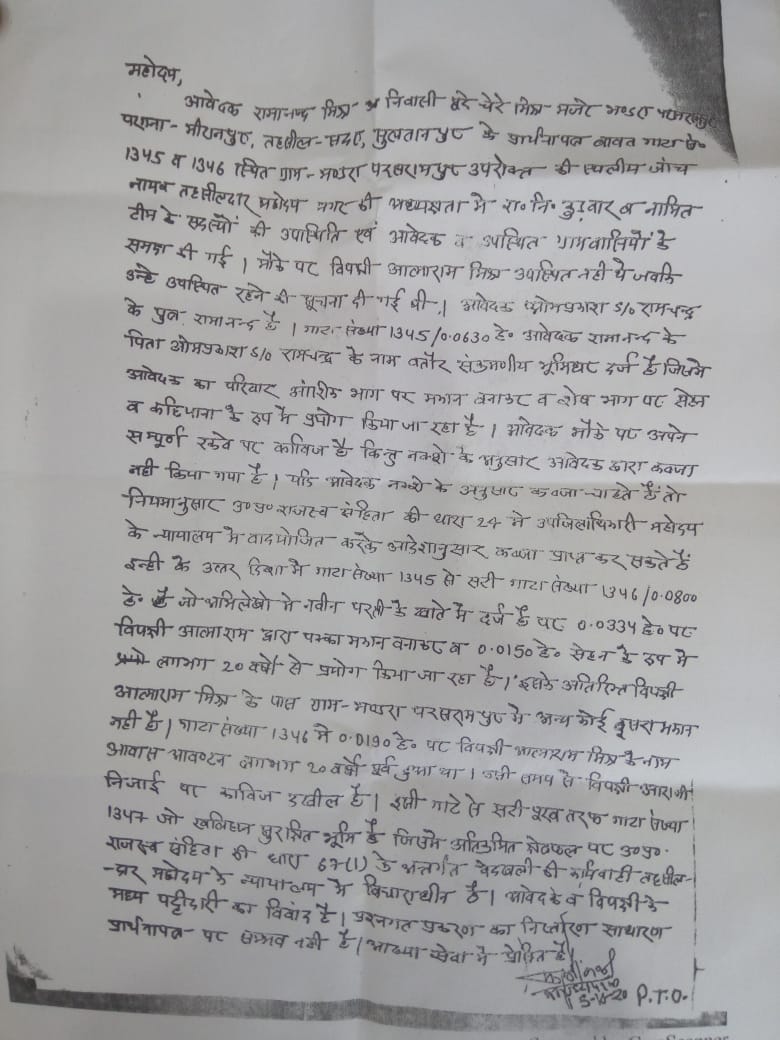 महोदय,
आवेदक रामानन्द मिश्र निवासी पूरे चेरे मिश्र मजरे भण्डरा परसरामपुर
परगना - मीरानपुर, तहसील - सदर, सुलतानपुर के प्रार्थनापत्र बावत गाटा सं०
1345 व 1346 स्थित ग्राम - भण्डरा परसरामपुर उपरोक्त की स्थलीय जांच
नायब तहसीलदार महोदय नगर की अध्यक्षता में रा० नि० कुड़वार व नामित
टीम के सदस्यों की उपस्थिति एवं आवेदक व उपस्थित ग्रामवासियों के
समक्ष की गई। मौके पर विपक्षी आत्माराम मिश्र उपस्थित नहीं थे जबकि
उन्हे उपस्थित रहने की सूचना दी गई थी। आवेदक ओमप्रकाश S/o रामचन्द्र
के पुत्र रामानन्द है। गाटा संख्या 1345/0.0630 हे० आवेदक रामानन्द के
पिता ओमप्रकाश S/o रामचन्द्र के नाम बतौर संक्रमणीय भूमिधर दर्ज है जिसमे
आवेदक का परिवार आंशिक भाग पर मकान बनाकर व शेष भाग पर सेहन
व के रूप में प्रयोग किया जा रहा है। आवेदक मौके पर अपने
सम्पूर्ण रकबे पर काबिज है किन्तु नक्शे के अनुसार आवेदक द्वारा कब्जा
नही किया गया है। यदि आवेदक नक्शे के अनुसार कब्जा चाहते हैं तो
नियमानुसार उ०प्र० राजस्व संहिता की धारा 24 में उपजिलाधिकारी महोदय
के न्यायालय में वाद योजित करके आदेशानुसार कब्जा प्राप्त कर सकते हैं
इन्ही के उत्तर दिशा में गाटा संख्या 1345 से सटी गाटा संख्या 1346/0.0800
हे० है जो अभिलेखो में नवीन परती के खाते में दर्ज है पर 0.0334 हे० पर
विपक्षी आत्माराम द्वारा पक्का मकान बनाकर व 0.0150 हे० सेहन के रूप में
लगभग 20 वर्षो से प्रयोग किया जा रहा है। इसके अतिरिक्त विपक्षी
आत्माराम मिश्र के पास ग्राम - भण्डरा परसरामपुर में अन्य कोई दूसरा मकान
नही है। गाटा संख्या 1346 में 0.0190 हे० पर विपक्षी आत्माराम मिश्र के नाम
आवास आवण्टन लगभग 20 वर्षो पूर्व हुआ था। उसी समय से विपक्षी आराजी
निजाई पर काबिज दखील है। इसी गाटे से सटी पूरब तरफ गाटा संख्या
1347 जो खलिहान सुरक्षित भूमि है जिसमे अतिक्रमित क्षेत्रफल पर उ०प्र०
राजस्व संहिता की धारा 67(1) के अन्तर्गत बेदखली की कार्यवाही तहसील-
-दार महोदय के न्यायालय में विचाराधीन है। आवेदक व विपक्षी के
मध्य पट्टीदारी का विवाद है। प्रश्नगत प्रकरण का निस्तारण साधारण
प्रार्थनापत्र पर संभव नही है। आख्या सेवा में प्रेषित है।
P.T.O.